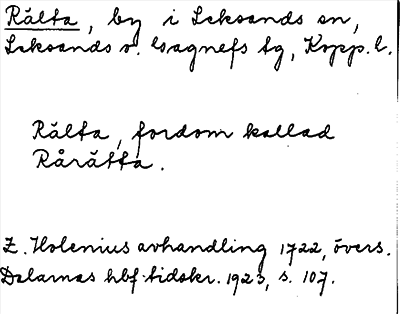 Rälta, by i Leksands sn,
Leksands o. Gagnefs tg, Kopp. l.
Rälta, fordom kallad
Rårätta.
Z. Holenius avhandling 1722, övers.
Dalarnas hbf:tidskr. 1923, s. 107.